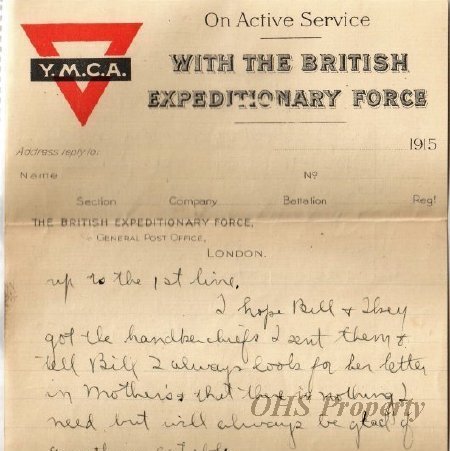 On Active Service
WITH THE BRITISH
EXPEDITIONARY FORCE
Y.M.C.A.
Address reply to:
1915
Name
No
Section Company Battalion Regt
THE BRITISH EXPEDITIONARY FORCE,
GENERAL POST OFFICE,
LONDON.
up to the 1st line.
I hope Bill &
got the handkerchiefs I sent them &
tell Bill I always look for her letter
in Mother's & that there is nothing I
need but will always be glad of
OHS Property